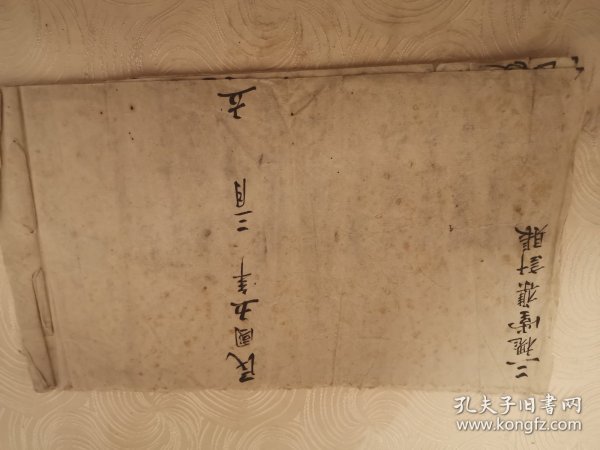 民國五年 三月 立
三槐堂雜計賬
孔夫子旧書网
www.kongfz.com